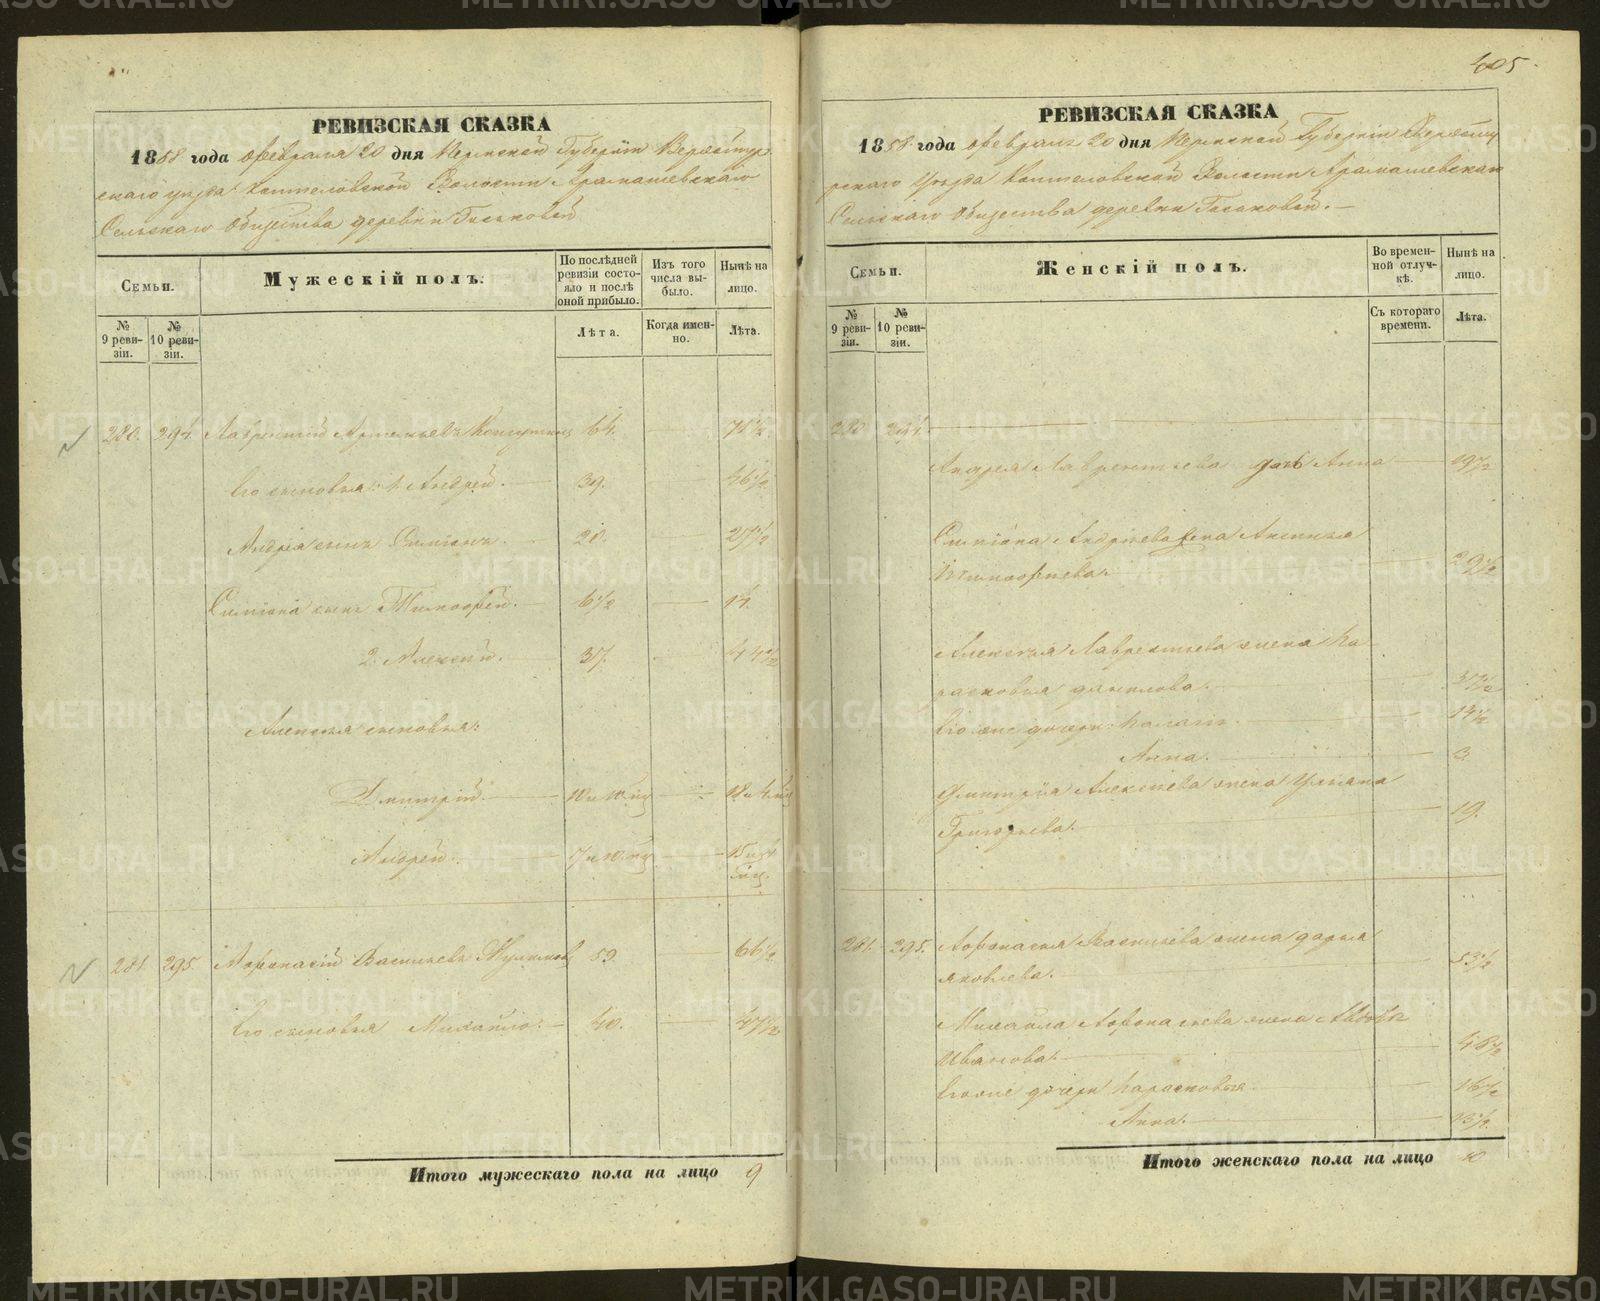 405.
РЕВИЗСКАЯ СКАЗКА
1858 года Февраля 20 дня Пермской Губерніи Верхотур
скаго уѣзда Коптеловской Волости Арамашевскаго
Сельскаго Общества деревни
Семьи.
Мужескій полъ.
По послѣдней ревизіи состояло и послѣ оной прибыло.
Изъ того числа выбыло.
Нынѣ на лицо.
№ 9 ревизіи.
№ 10 ревизіи.
Лѣта.
Когда именно.
Лѣта.
280. 294. Лаврентій Артемьевъ 64. 71½
Его сыновья: 1 Андрей. 39. 46½
Андрея сынъ Симіонъ. 20. 27½
Симіона сынъ Тимофей. 6½ 14.
2. Алексѣй. 37. 44½
Алексѣя сыновья:
Дмитрій.
Андрей.
281. 295. Афонасій Васильевъ 59. 66½
Его сыновья Михайло. 40. 47½
Итого мужескаго пола на лицо 9
РЕВИЗСКАЯ СКАЗКА
1858 года Февраля 20 дня Пермской Губерніи Верхоту
рскаго Уѣзда Коптеловской Волости Арамашевскаго
Сельскаго Общества деревни
Семьи.
Женскій полъ.
Во временной отлучкѣ.
Нынѣ на лицо.
№ 9 ревизіи.
№ 10 ревизіи.
Съ котораго времени.
Лѣта.
280. 294.
Андрея Лаврентьева дочь Анна 19½
Симіона Андреева жена Аксинья
Тимофеева. 29½
Алексѣя Лаврентьева жена Па
расковья Данилова. 37½
Его же дочери: 14½
Анна. 3
Дмитрія Алексѣева жена Ульяна
Григорьева. 19.
281. 295. Афонасья Васильева жена Дарья
Яковлева. 53½
Михайла Афонасьева жена
Иванова. 46½
Его же дочери Парасковья 16½
Анна. 13½
Итого женскаго пола на лицо 10
METRIKI.GASO-URAL.RU